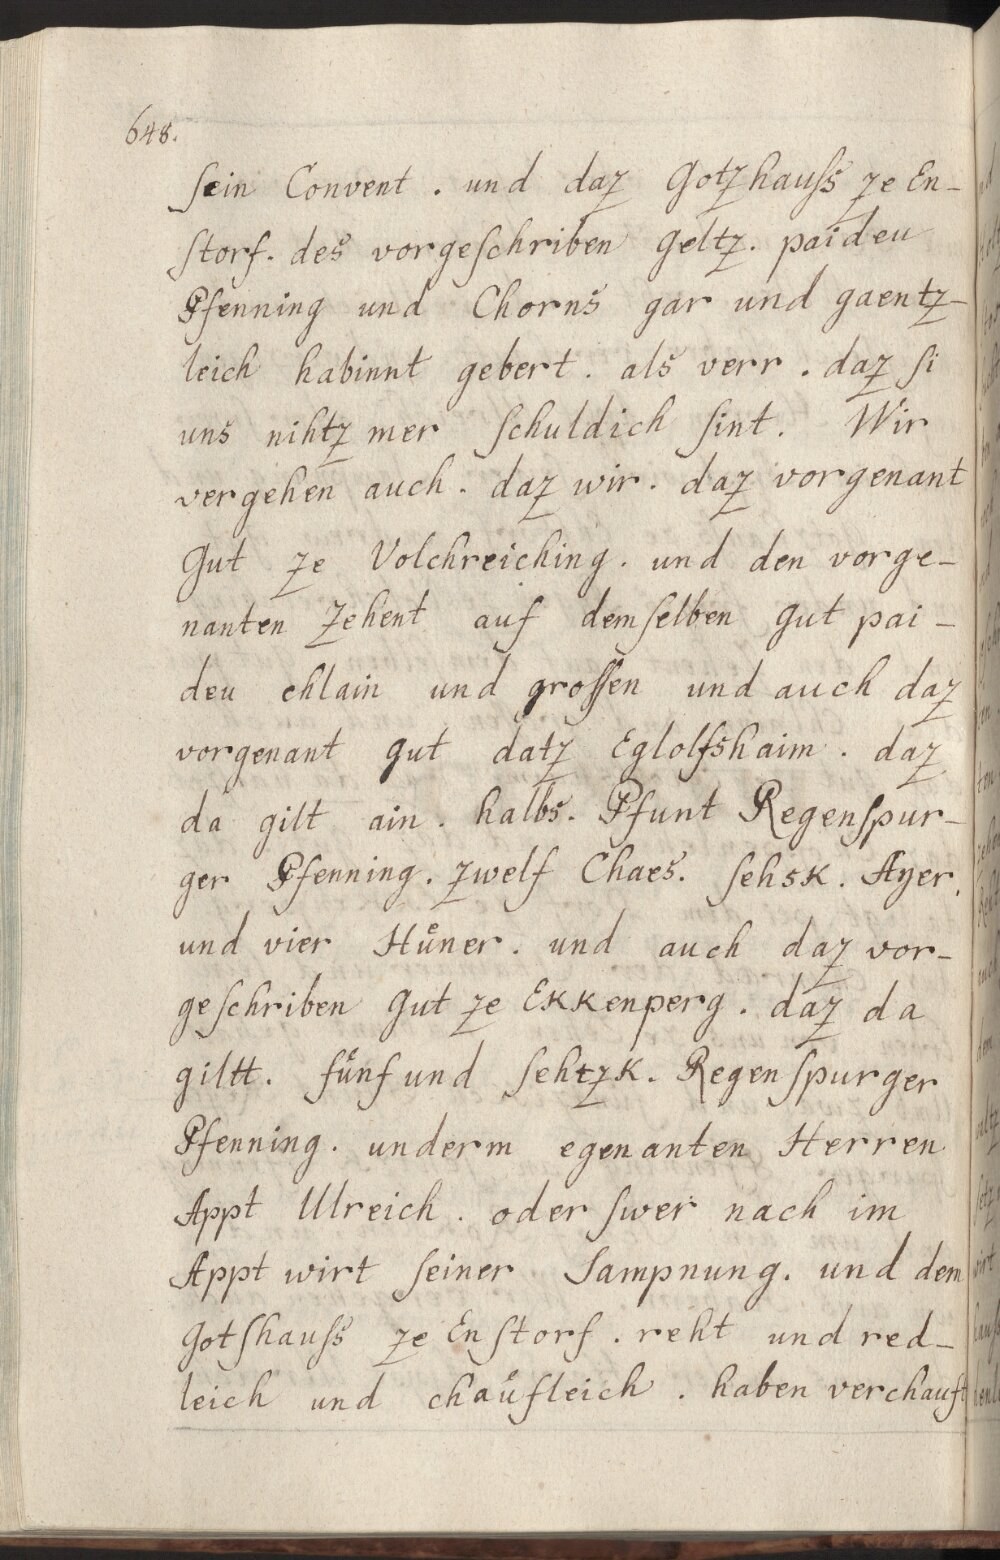 648.
sein Convent . und daz Gotzhauss ze En-
storf . des vorgeschriben geltz . paideu
Pfenning und Chorns gar und gaentz-
leich habinnt gebert . als verr . daz si
uns nihtz mer schuldich sint . Wir
vergehen auch . daz wir . daz vorgenant
Gut ze Volchreiching . und den vorge-
nanten zehent auf demselben gut pai-
deu chlain und grossen und auch daz
vorgenant gut datz Eglolfshaim . daz
da gilt ain . halbs . Pfunt Regenspur-
ger Pfenning . zwelf Chaes . sehsk . Ayer .
und vier Huͤner . und auch daz vor-
geschriben Gut ze Ekkenperg . daz da
giltt . fuͤnf und sehtzk . Regenspurger
Pfenning . underm egenanten Herren
Appt Ulreich . oder swer nach im
Appt wirt seiner Sampnung . und dem
Gotshauss ze Enstorf . reht und red-
leich und chauͤfleich . haben verchauft